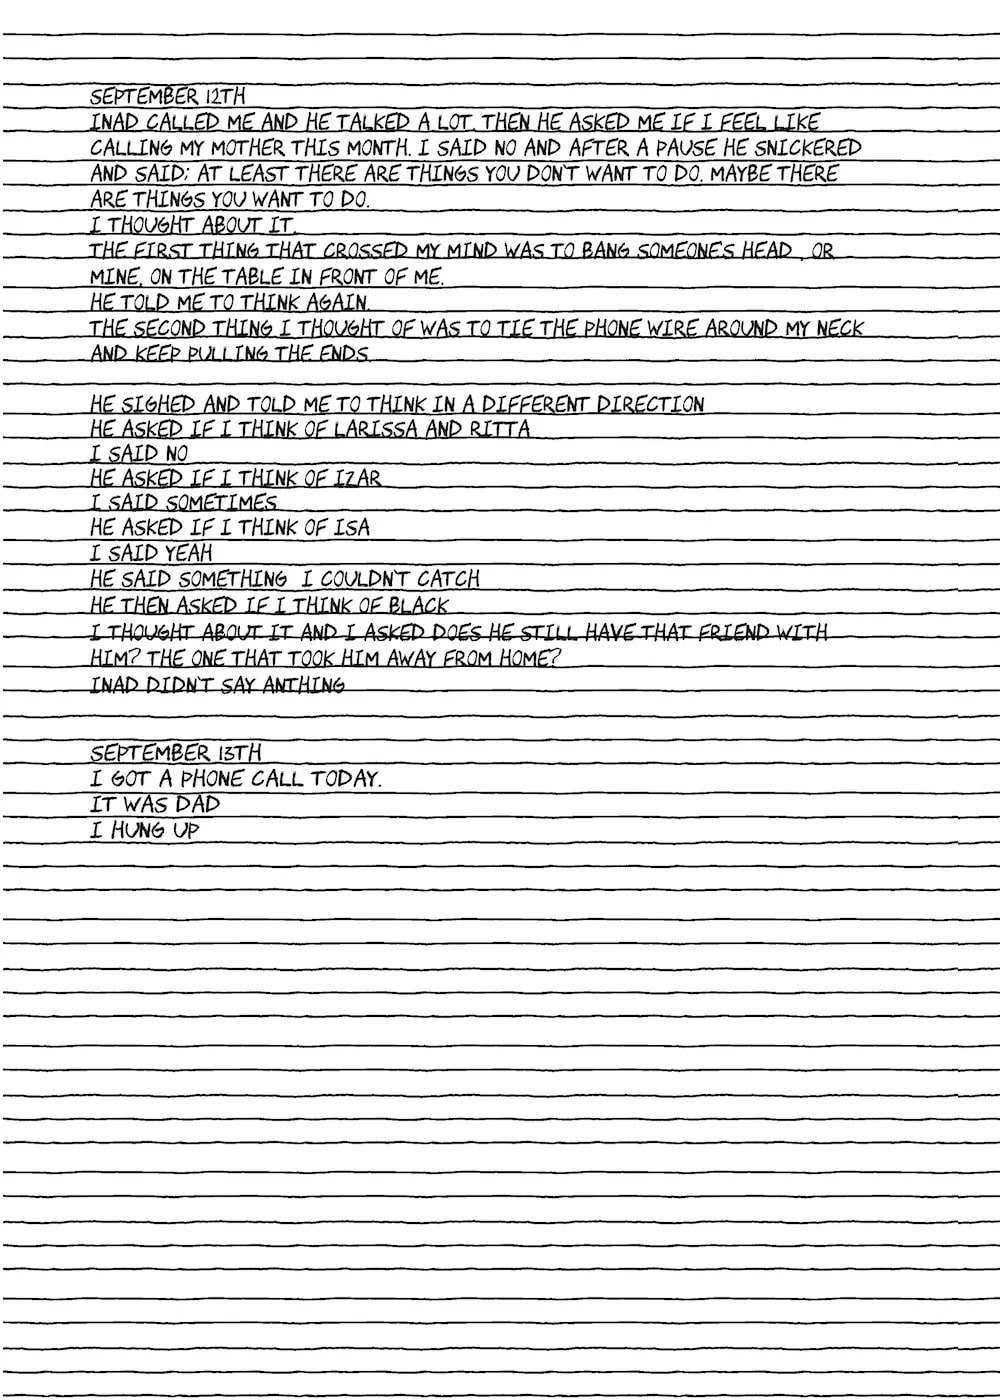 SEPTEMBER 12TH
INAD CALLED ME AND HE TALKED A LOT. THEN HE ASKED ME IF I FEEL LIKE
CALLING MY MOTHER THIS MONTH. I SAID NO AND AFTER A PAUSE HE SNICKERED
AND SAID; AT LEAST THERE ARE THINGS YOU DON'T WANT TO DO. MAYBE THERE
ARE THINGS YOU WANT TO DO.
I THOUGHT ABOUT IT.
THE FIRST THING THAT CROSSED MY MIND WAS TO BANG SOMEONE'S HEAD , OR
MINE, ON THE TABLE IN FRONT OF ME.
HE TOLD ME TO THINK AGAIN.
THE SECOND THING I THOUGHT OF WAS TO TIE THE PHONE WIRE AROUND MY NECK
AND KEEP PULLING THE ENDS.
HE SIGHED AND TOLD ME TO THINK IN A DIFFERENT DIRECTION
HE ASKED IF I THINK OF LARISSA AND RITTA
I SAID NO
HE ASKED IF I THINK OF IZAR
I SAID SOMETIMES
HE ASKED IF I THINK OF ISA
I SAID YEAH
HE SAID SOMETHING I COULDN'T CATCH
HE THEN ASKED IF I THINK OF BLACK
I THOUGHT ABOUT IT AND I ASKED DOES HE STILL HAVE THAT FRIEND WITH
HIM? THE ONE THAT TOOK HIM AWAY FROM HOME?
INAD DIDN'T SAY ANTHING
SEPTEMBER 13TH
I GOT A PHONE CALL TODAY.
IT WAS DAD
I HUNG UP